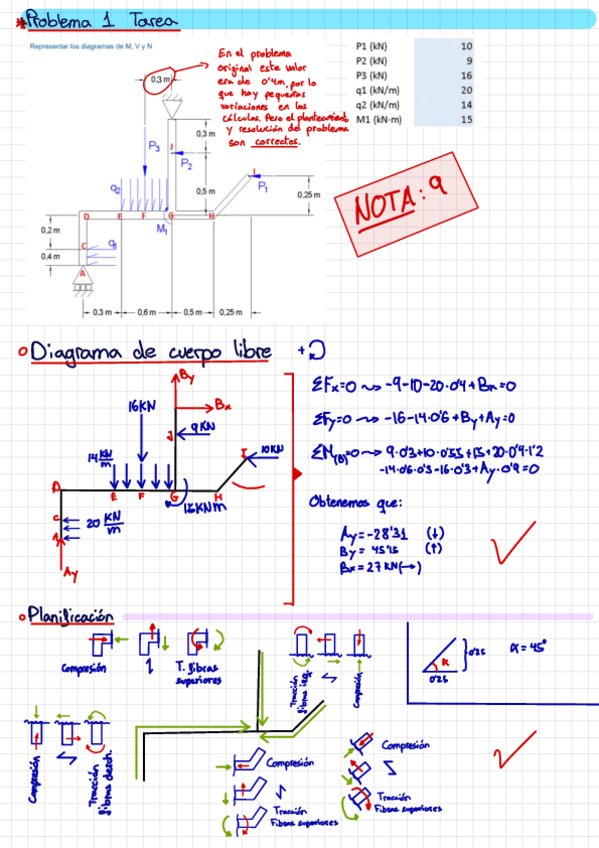 *Problema 1 Tarea
Representar los diagramas de M, V y N
0,3 m
En el problema
original este valor
era de 0'4m, por lo
que hay pequeñas
variaciones en los
cálculos. Pero el planteamiento
y resolución del problema
son correctos.
P1 (kN) 10
P2 (kN) 9
P3 (kN) 16
q1 (kN/m) 20
q2 (kN/m) 14
M1 (kN·m) 15
NOTA: 9
0,3 m
J
P3
P2
I
q2
0,5 m
P1
0,25 m
D E F G H
M1
0,2 m
C q1
0,4 m
A
0,3 m 0,6 m 0,5 m 0,25 m
Diagrama de cuerpo libre +
By
Bx
16KN
J 9KN
I 10KN
14 KN/m
D E F G H
15KNm
C
20 KN/m
A
Ay
ΣFx=0 ~> -9-10-20·0'4+Bx=0
ΣFy=0 ~> -16-14·0'6+By+Ay=0
ΣM(B)=0 ~> 9·0'3+10·0'55+15+20·0'4·1'2
-14·0'6·0'3-16·0'3+Ay·0'9=0
Obtenemos que:
Ay=-28'31 (↓)
By= 45'15 (↑)
Bx=27 KN(→)
Planificación
Compresión
T. fibras
superiores
Tracción
fibras izq.
Compresión
α
0'25
0'25
α=45°
Compresión
Tracción
fibras derch.
Compresión
Tracción
Fibras superiores
Compresión
Tracción
Fibras superiores